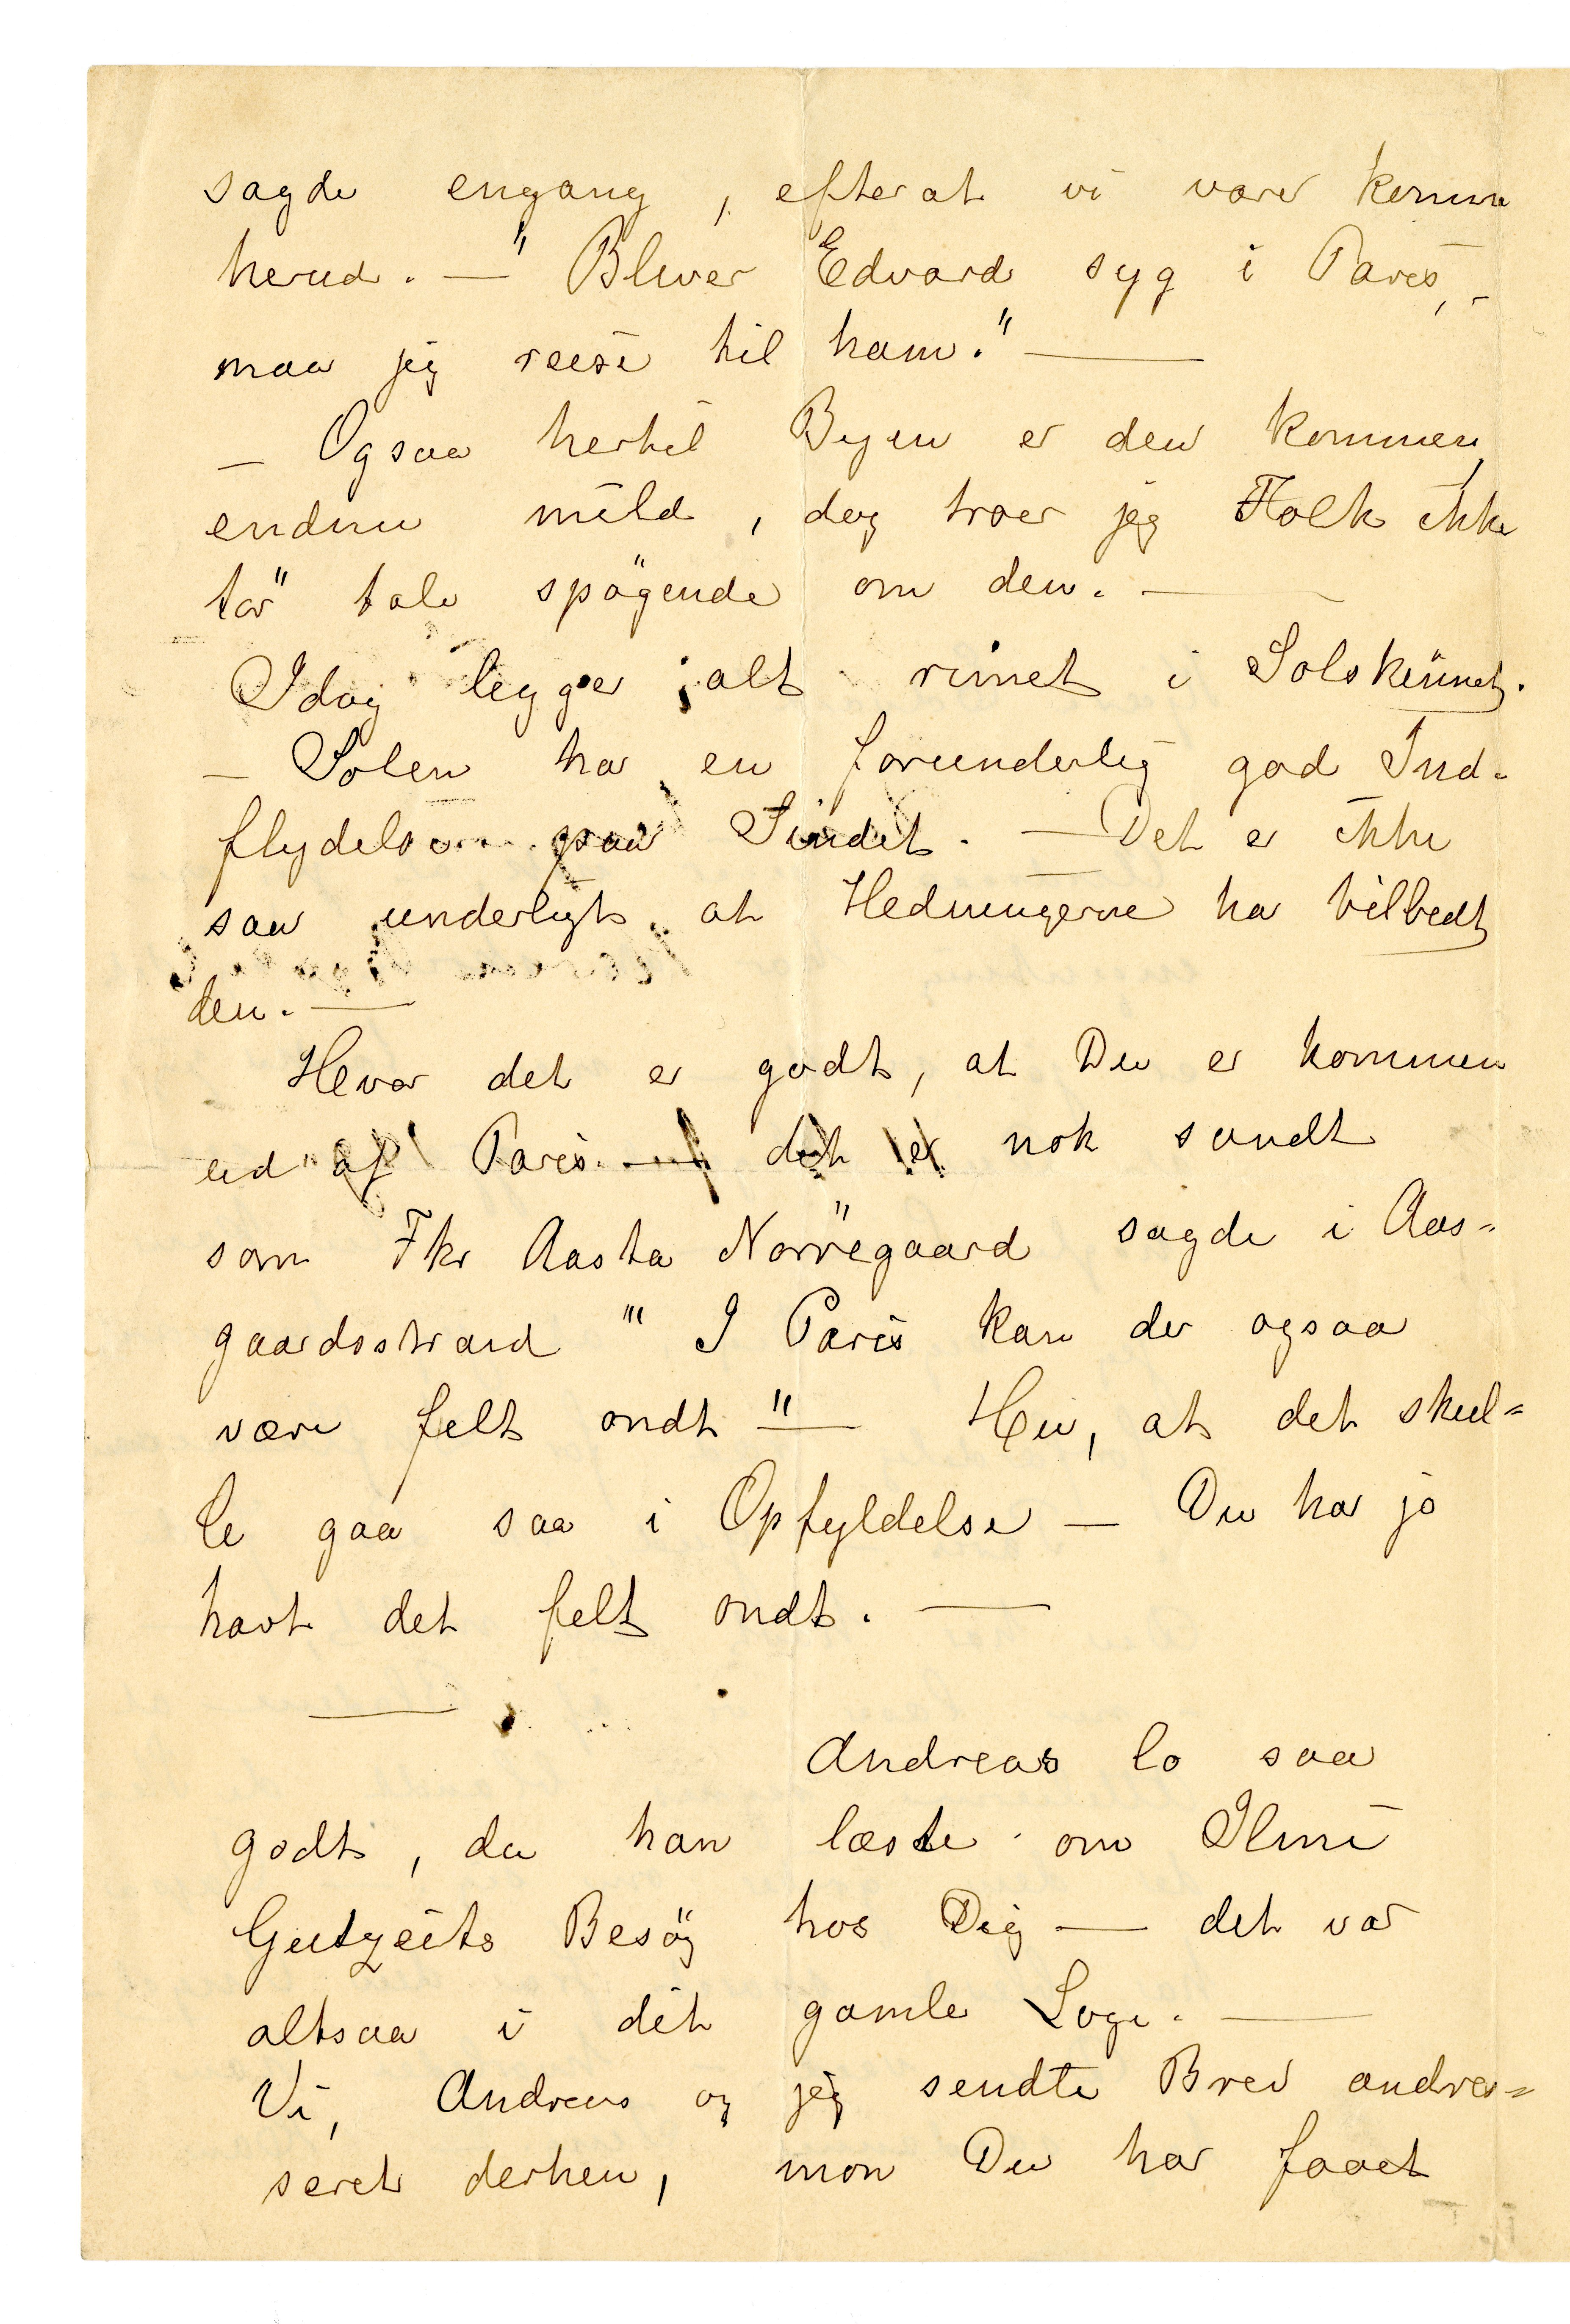 sagde engang, efterat vi varer komne
herud. — "Bliver Edvard syg i Paris, –
maa jeg reise til ham." —
— Ogsaa hertil Byen er den kommen,
endnu mild, dog troer jeg Folk ikke
tör tale spögende om den. —
Idag ligger alt rimet i Solskinnet.
— Solen ha en forunderlig god Ind-
flydelse paa Sindet. — Det er ikke
saa underligt at Hedningerne ha tilbedt
den. —
Hvor det er godt, at Du er kommen
ud af Paris — det er nok sandt
som Frk Aasta Nörregaard sagde i Aas=
gaardsstrand "I Paris kan der ogsaa
være fælt ondt" — Hu, at det skul=
le gaa saa i Opfyldelse — Du har jo
havt det fælt ondt. —
—
Andreas lo saa
godt, da han læste om Ihne
Gutzeits Besög hos Dig — det var
altsaa i dit gamle Logi. —
Vi, Andreas og jeg sendte Brev andres=
seret derhen, mon Du har faaet